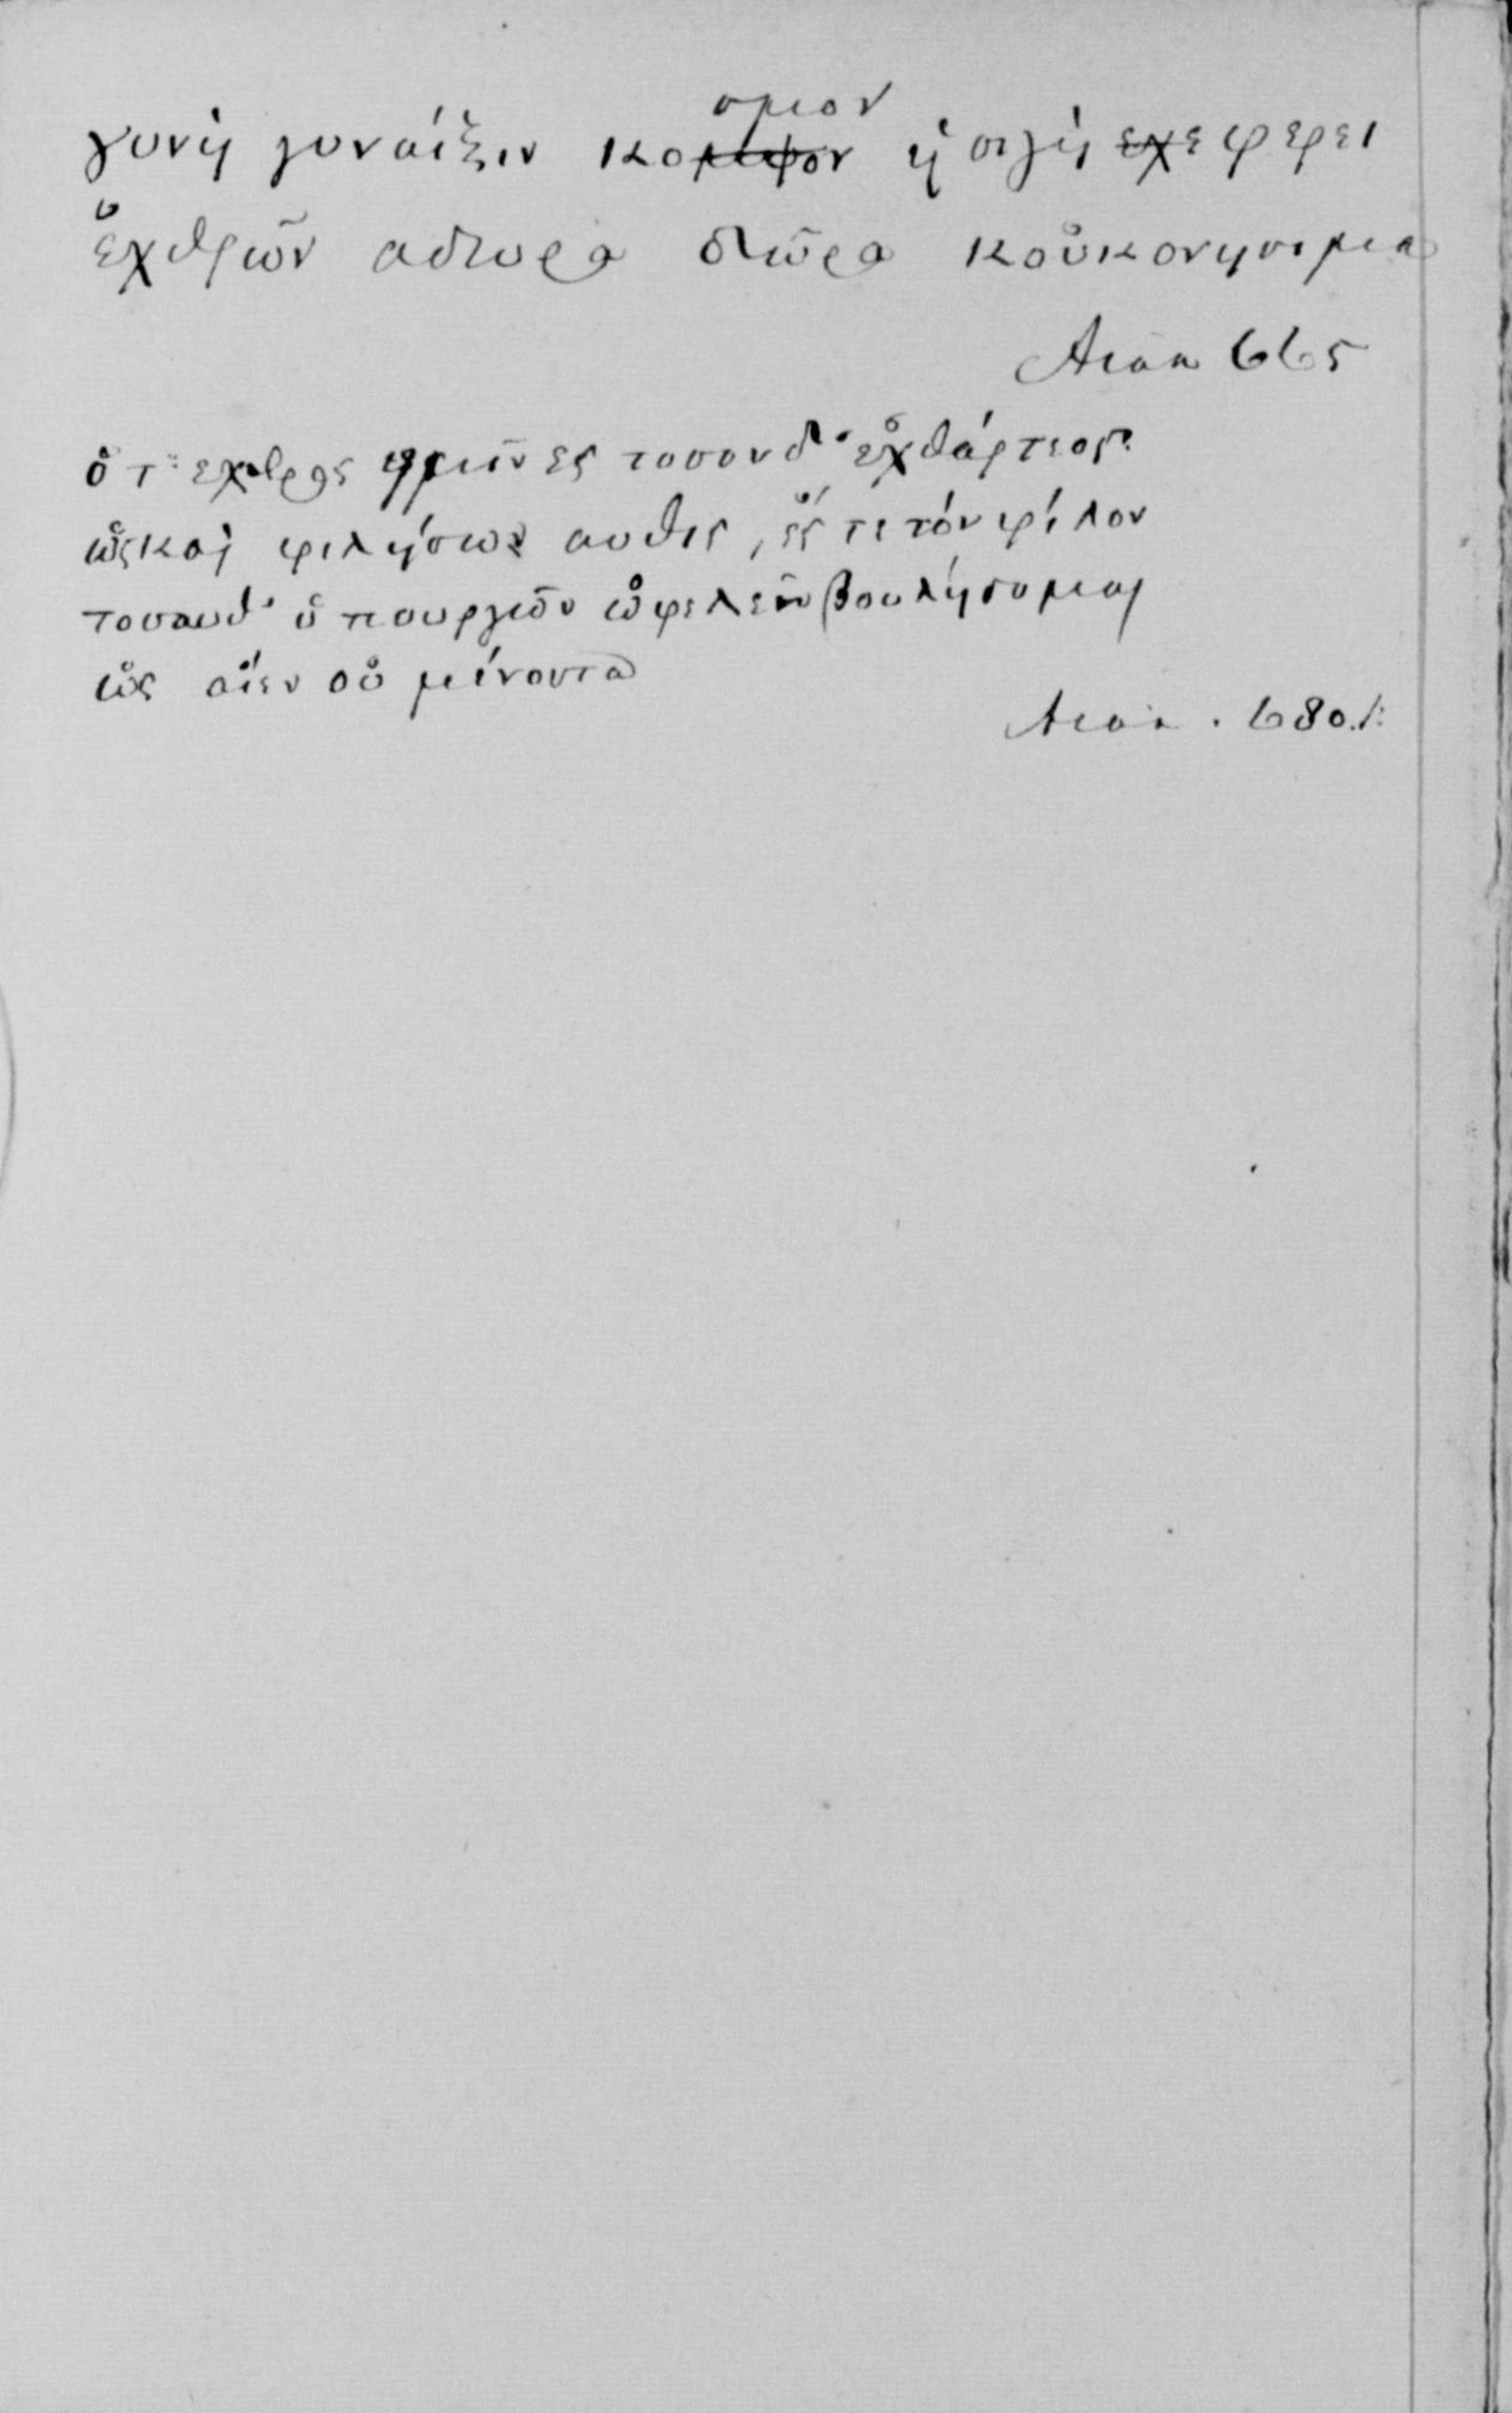 σμον
γυνή γυναίξιν κομψον ἡ σιγή εχε φερει
ἐχθρῶν αδωρα δῶρα κοὐκ ονησιμα
Aias 665
ὅ τ' εχθρος ημῖν ες τοσονδ' ἐχθάρτεος
ὡς καὶ φιλήσων αυθις, ἔς τε τόν φίλον
τοσαυθ' ὑπουργῶν ὠφελεῖν βουλήσομαι
ὡς αἰέν οὐ μένοντα
Aias. 680.